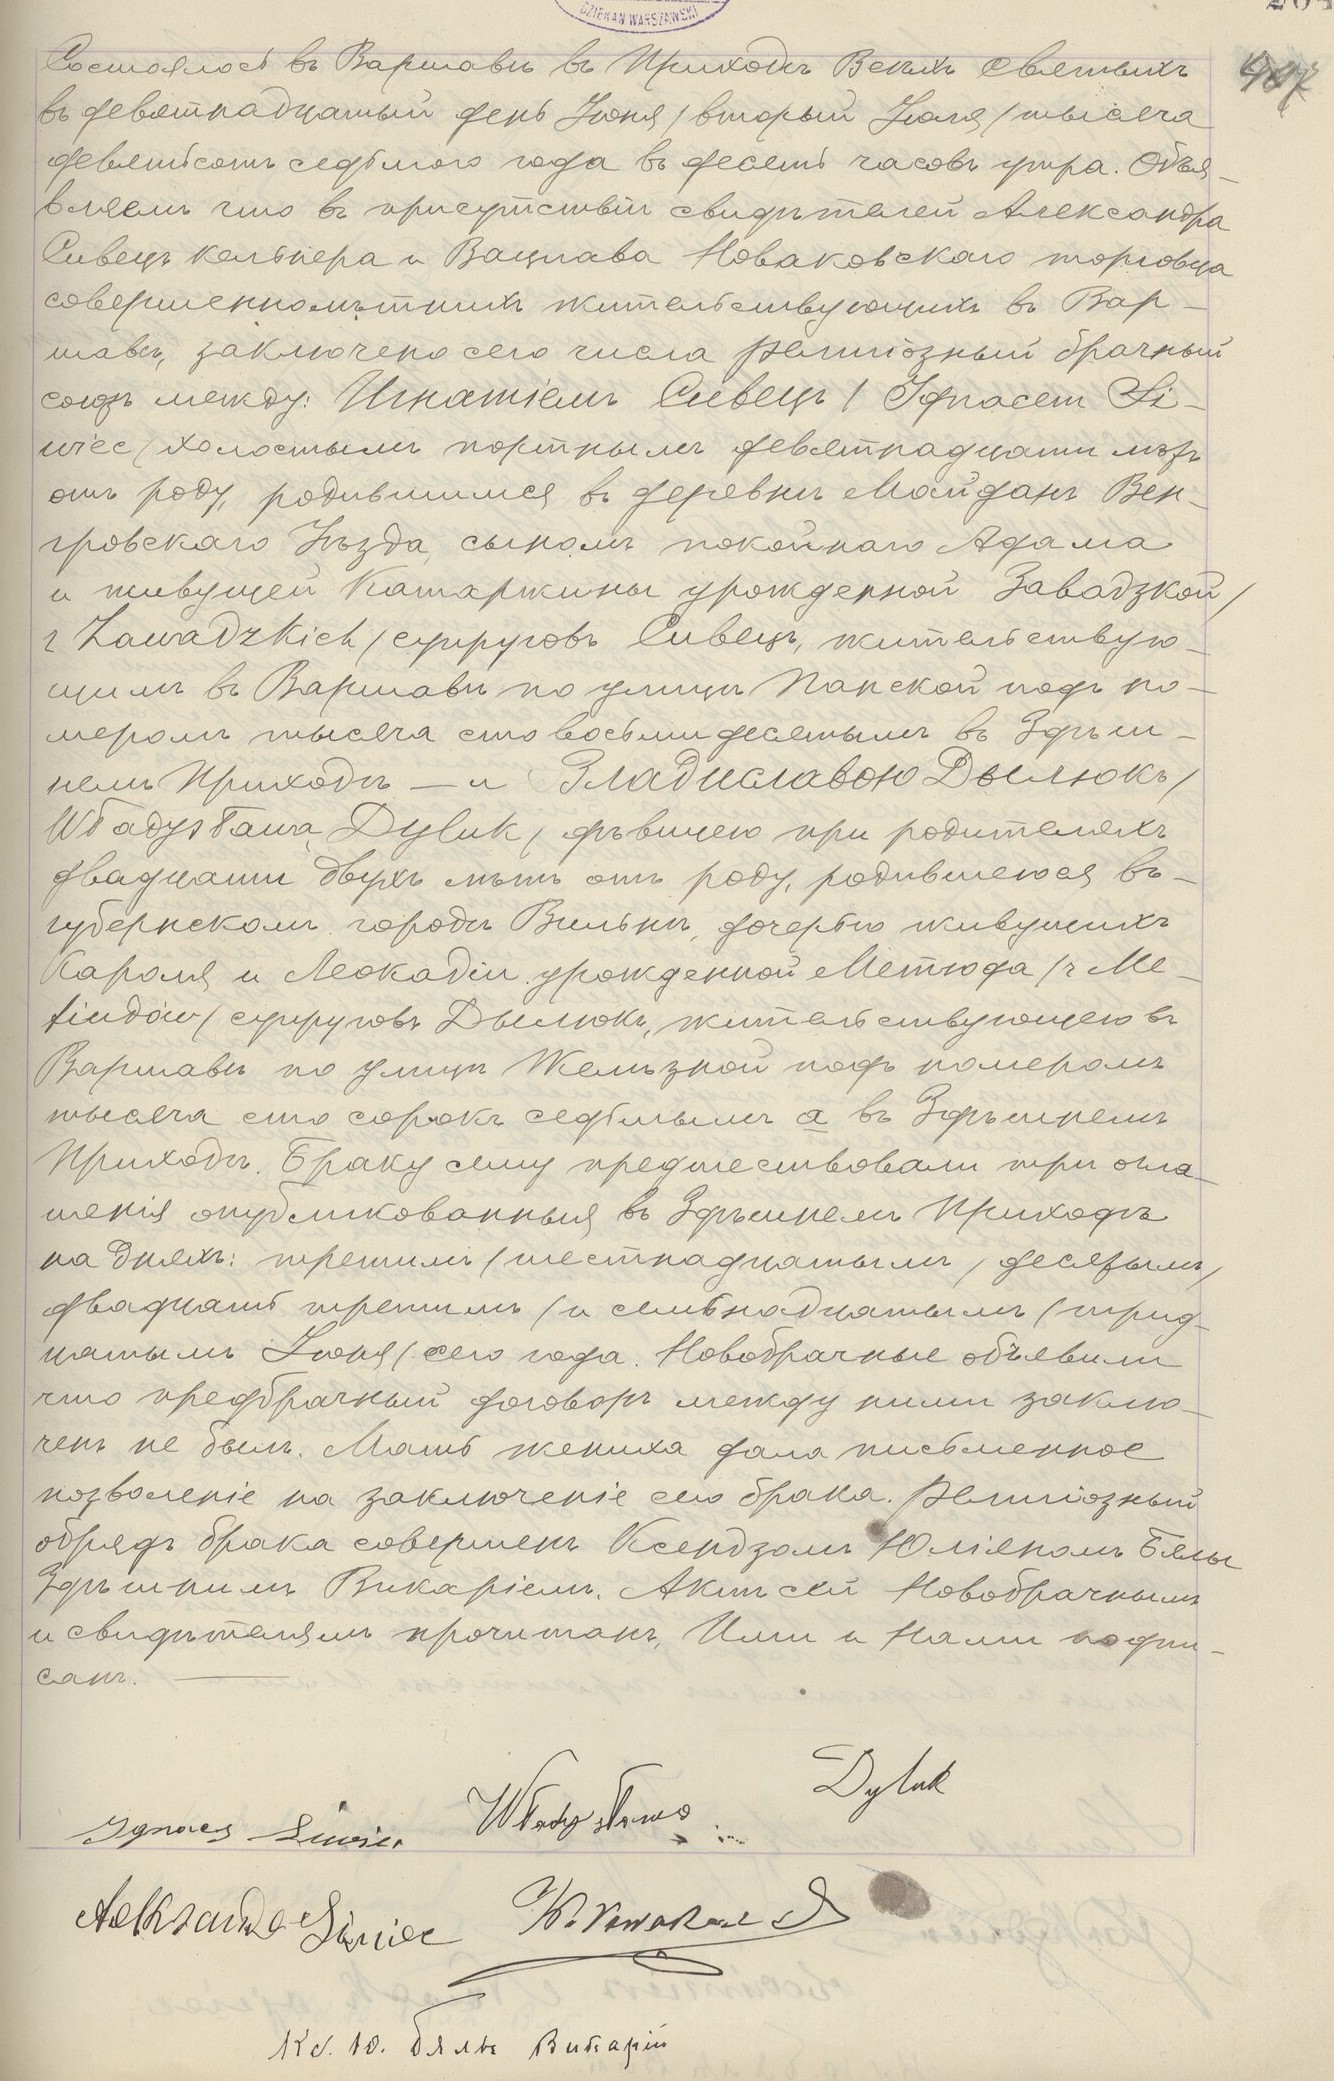 DZIEKAN WARSZAWSKI
Состоялось въ Варшавѣ въ Приходѣ Всѣхъ Святыхъ
въ девятнадцатый день Іюня / второй Іюля / тысяча
девятьсотъ седьмого года въ десять часовъ утра. Объя-
вляемъ что въ присутствіи свидѣтелей Александра
Сивецъ кельнера и Вацлава Новаковскаго торговца
совершеннолѣтнихъ жительствующихъ въ Вар-
шавѣ, заключено сего числа религіозный брачный
союзъ между: Игнатіемъ Сивецъ / Ignacem Si-
wiec / холостымъ портнымъ девятнадцати лѣтъ
отъ роду, родившимся въ деревнѣ Майданъ Вен-
гровскаго Уѣзда, сыномъ покойнаго Адама
и живущей Катаржины урожденной Завадзкой /
z Zawadzkich / супруговъ Сивецъ, жительствую-
щимъ въ Варшавѣ по улицѣ Панской подъ но-
меромъ тысяча сто восьмидесятымъ въ Здѣш-
немъ Приходѣ — и Владиславою Дылюкъ /
Władysławą Dyluk / дѣвицею при родителяхъ
двадцати двухъ лѣтъ отъ роду, родившеюся въ-
губернскомъ городѣ Вильнѣ, дочерью живущихъ
Кароля и Леокадіи урожденной Метюда / z Me-
tiudów / супруговъ Дылюкъ, жительствующею въ
Варшавѣ по улицѣ Желѣзной подъ номеромъ
тысяча сто сорокъ седьмымъ а въ Здѣшнемъ
Приходѣ. Браку сему предшествовали три огла-
шенія опубликованныя въ Здѣшнемъ Приходѣ
на дняхъ: третьимъ / шестнадцатымъ, десятымъ /
двадцать третьимъ / и семнадцатымъ / трид-
цатымъ Іюня / сего года. Новобрачные объявили
что предбрачный договоръ между ними заклю-
ченъ не былъ. Мать жениха дала письменное
позволеніе на заключеніе сего брака. Религіозный
обрядъ брака совершенъ Ксендзомъ Юліяномъ Бялы
Здѣшнимъ Викаріемъ. Актъ сей Новобрачнымъ
и свидѣтелямъ прочитанъ, Ими и Нами подпи-
санъ.
Ignacy Siwiec Władysława Dyluk
Aleksander Siwiec W. Nowakowski
Кс. Ю. Бялы Викарій